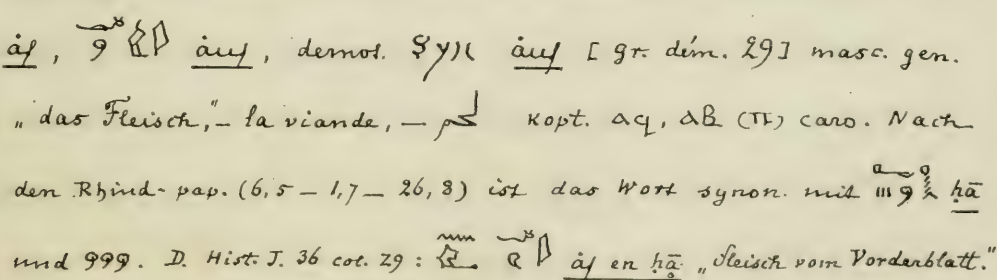 ȧf, ȧuf, demot. ȧuf [gr. dém. 29] masc. gen.
„das Fleisch,“ – la viande, – لحم kopt. ⲁϥ, ⲁⲃ (ⲡⲓ) caro. Nach
den Rhind-pap. (6,5 – 1,7 – 26,8) ist das Wort synon. mit ḥā
und 𓄹𓄹𓄹. D. Hist. J. 36 col. 29 : ȧf en ḥā „Fleisch vom Vorderblatt.“